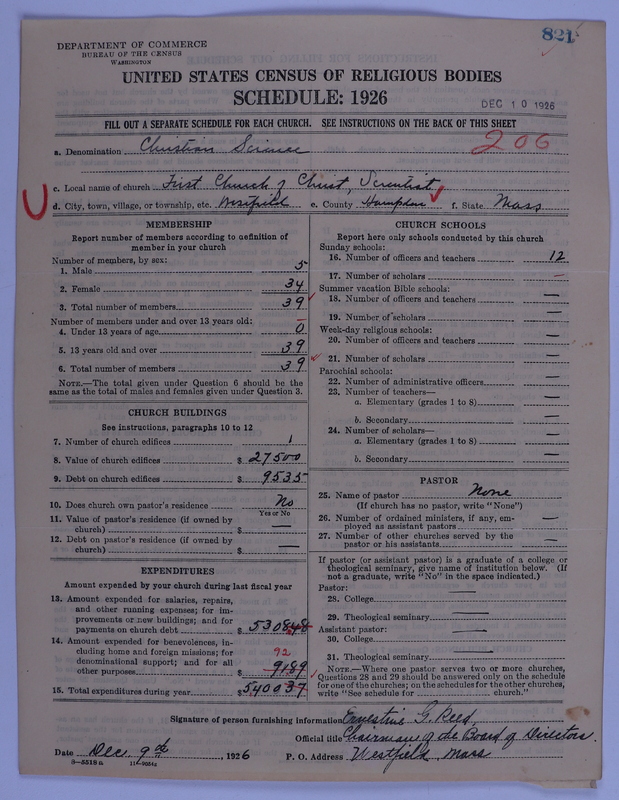 821
DEPARTMENT OF COMMERCE
BUREAU OF THE CENSUS
WASHINGTON
UNITED STATES CENSUS OF RELIGIOUS BODIES
SCHEDULE: 1926
DEC 10 1926
FILL OUT A SEPARATE SCHEDULE FOR EACH CHURCH. SEE INSTRUCTIONS ON THE BACK OF THIS SHEET
206
a. Denomination Christian Science
c. Local name of church First Church of Christ, Scientist
d. City, town, village, or township, etc. Westfield e. County Hampden f. State Mass
MEMBERSHIP
Report number of members according to definition of
member in your church
Number of members, by sex:
1. Male 5
2. Female 34
3. Total number of members 39
Number of members under and over 13 years old:
4. Under 13 years of age 0
5. 13 years old and over 39
6. Total number of members 39
NOTE.—The total given under Question 6 should be the
same as the total of males and females given under Question 3.
CHURCH BUILDINGS
See instructions, paragraphs 10 to 12
7. Number of church edifices 1
8. Value of church edifices $ 27500
9. Debt on church edifices $ 9535
10. Does church own pastor's residence No
Yes or No
11. Value of pastor's residence (if owned by
church) $ —
12. Debt on pastor's residence (if owned by
church) $ —
EXPENDITURES
Amount expended by your church during last fiscal year
13. Amount expended for salaries, repairs,
and other running expenses; for im-
provements or new buildings; and for
payments on church debt $ 530848
14. Amount expended for benevolences, in-
cluding home and foreign missions; for
denominational support; and for all
92
other purposes $ 9189
15. Total expenditures during year $ 540037
CHURCH SCHOOLS
Report here only schools conducted by this church
Sunday schools:
16. Number of officers and teachers 12
17. Number of scholars —
Summer vacation Bible schools:
18. Number of officers and teachers —
19. Number of scholars —
Week-day religious schools:
20. Number of officers and teachers —
21. Number of scholars —
Parochial schools:
22. Number of administrative officers —
23. Number of teachers—
a. Elementary (grades 1 to 8) —
b. Secondary —
24. Number of scholars—
a. Elementary (grades 1 to 8) —
b. Secondary —
PASTOR
25. Name of pastor None
(If church has no pastor, write "None")
26. Number of ordained ministers, if any, em-
ployed as assistant pastors —
27. Number of other churches served by the
pastor or his assistants —
If pastor (or assistant pastor) is a graduate of a college or
theological seminary, give name of institution below. (If
not a graduate, write "No" in the space indicated.)
Pastor:
28. College —
29. Theological seminary —
Assistant pastor:
30. College —
31. Theological seminary —
NOTE.—Where one pastor serves two or more churches,
Questions 28 and 29 should be answered only on the schedule
for one of the churches; on the schedules for the other churches,
write "See schedule for church."
Signature of person furnishing information Ernestine G. Reed
Official title Chairman of the Board of Directors.
Date Dec. 9th, 1926 P. O. Address Westfield Mass